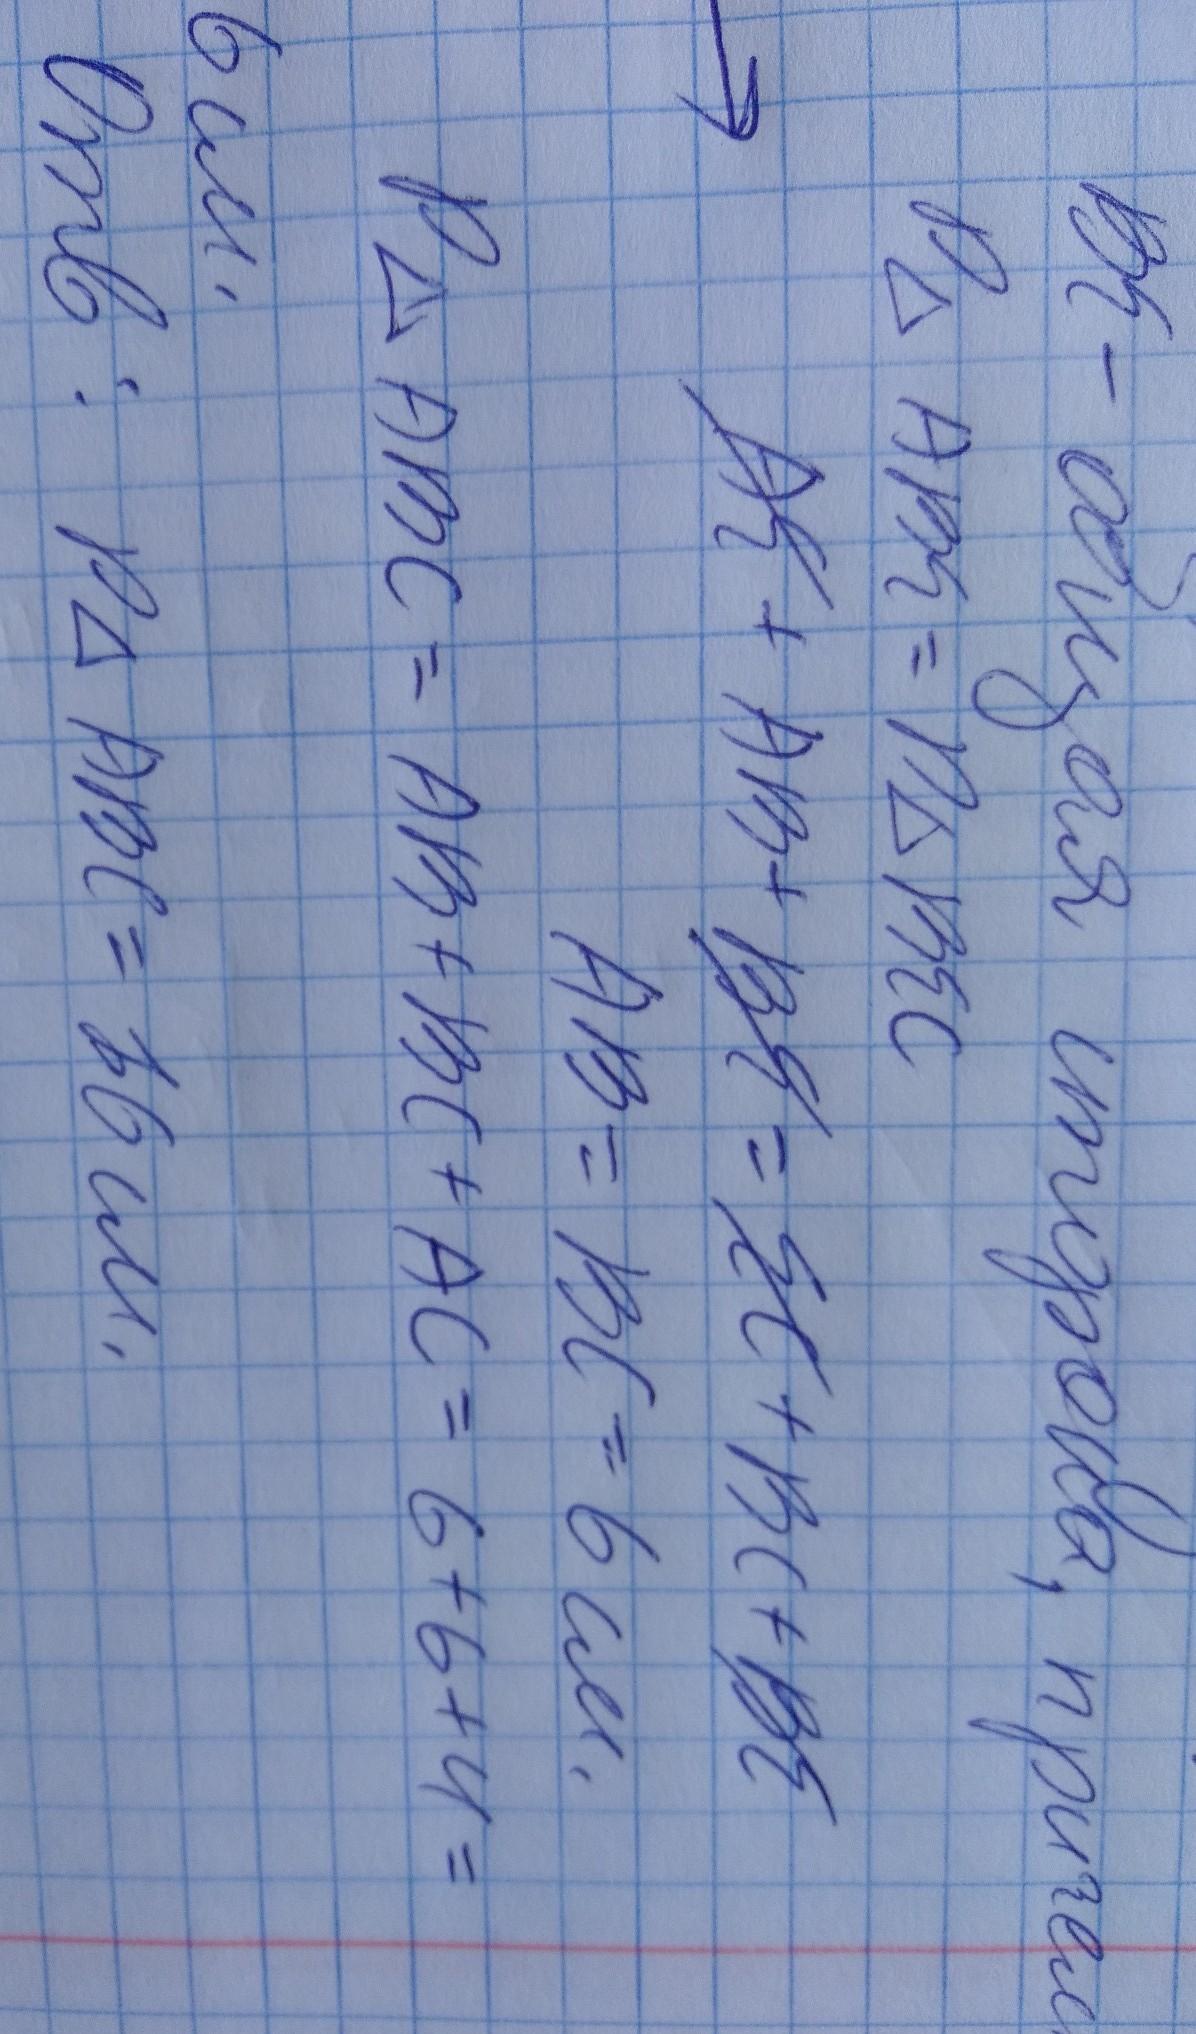 BE - общая сторона, причем
P△ ABE = P△ BEC
→ AE + AB + BE = EC + BC + BE
AB = BC = 6 см.
P△ ABC = AB + BC + AC = 6 + 6 + 4 =
6 см.
Отв: P△ ABC = 16 см.